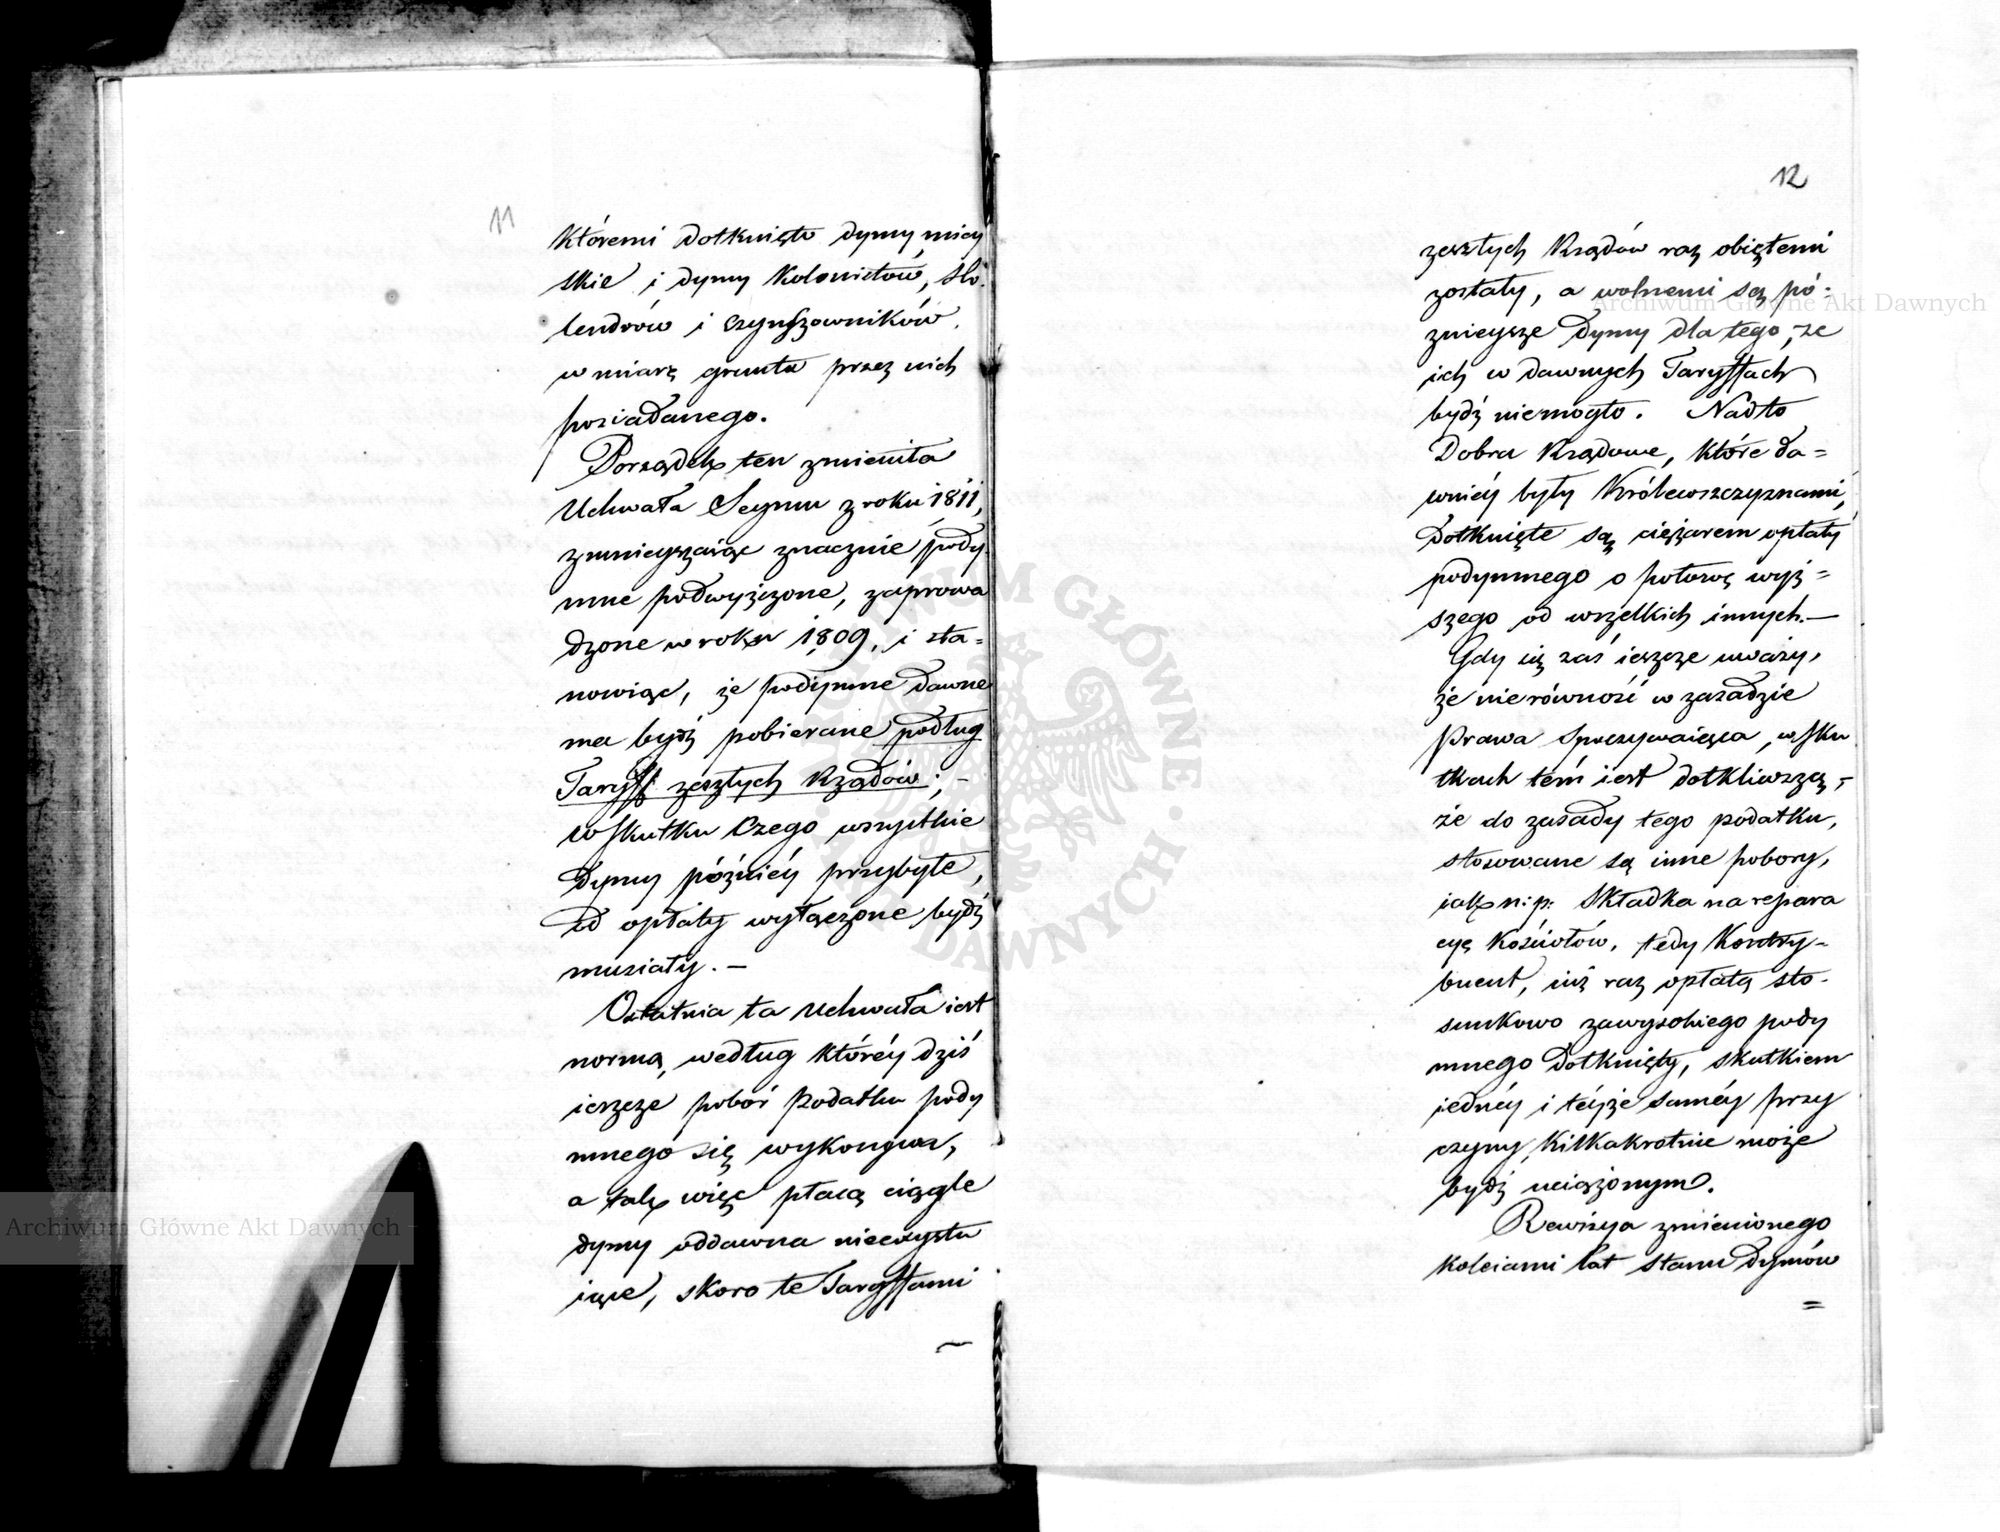 11
któremi dotknięto dymy miey
skie i dymy Kolonistów, Ho-
lendrów i czynszowników,
w miarę gruntu przez nich
posiadanego.
Porządek ten zmieniła
Uchwała Seymu z roku 1811,
zmnieyszaiąc znacznie pody
mne podwyższone, zaprowa
dzone w roku 1809, i sta=
nowiąc, że podymne dawne
ma bydź pobierane podług
Taryff zeszłych Rządów; –
w skutku czego wszystkie
dymy późniéy przybyłe,
od opłaty wyłączone bydź
musiały. –
Ostatnia ta Uchwała iest
normą, według któréy dziś
ieszcze pobór Podatku pody
mnego się wykonywa,
a tak więc płacą ciągle
dymy oddawna nieexystu
iące, skoro te Taryffami
12
zeszłych Rządów raz obiętemi
zostały, a wolnemi są pó-
znieysze dymy dla tego, że
ich w dawnych Taryffach
bydź niemogło. Nadto
Dobra Rządowe, które da=
wniéy były Królewszczyznami,
dotknięte są ciężarem opłaty
podymnego o połowę wyż=
szego od wszelkich innych. –
Gdy się zaś ieszcze uważy,
że nierówność w zasadzie
Prawa spoczywaiąca, w sku
tkach tém iest dotkliwszą, –
że do zasady tego podatku,
stosowane są inne pobory,
iak n: p: Składka na repara
cyę Kościołów, tedy Kontry-
buent, iuż raz opłatą sto-
sunkowo zawysokiego pody
mnego dotknięty, skutkiem
iednéy i téyże saméy przy
czyny, kilkakrotnie może
bydź uciążonym.
Rewizya zmienionego
koleiami lat stanu dymów
=
Archiwum Główne Akt Dawnych
Archiwum Główne Akt Dawnych
ARCHIWUM GŁÓWNE · AKT DAWNYCH ·